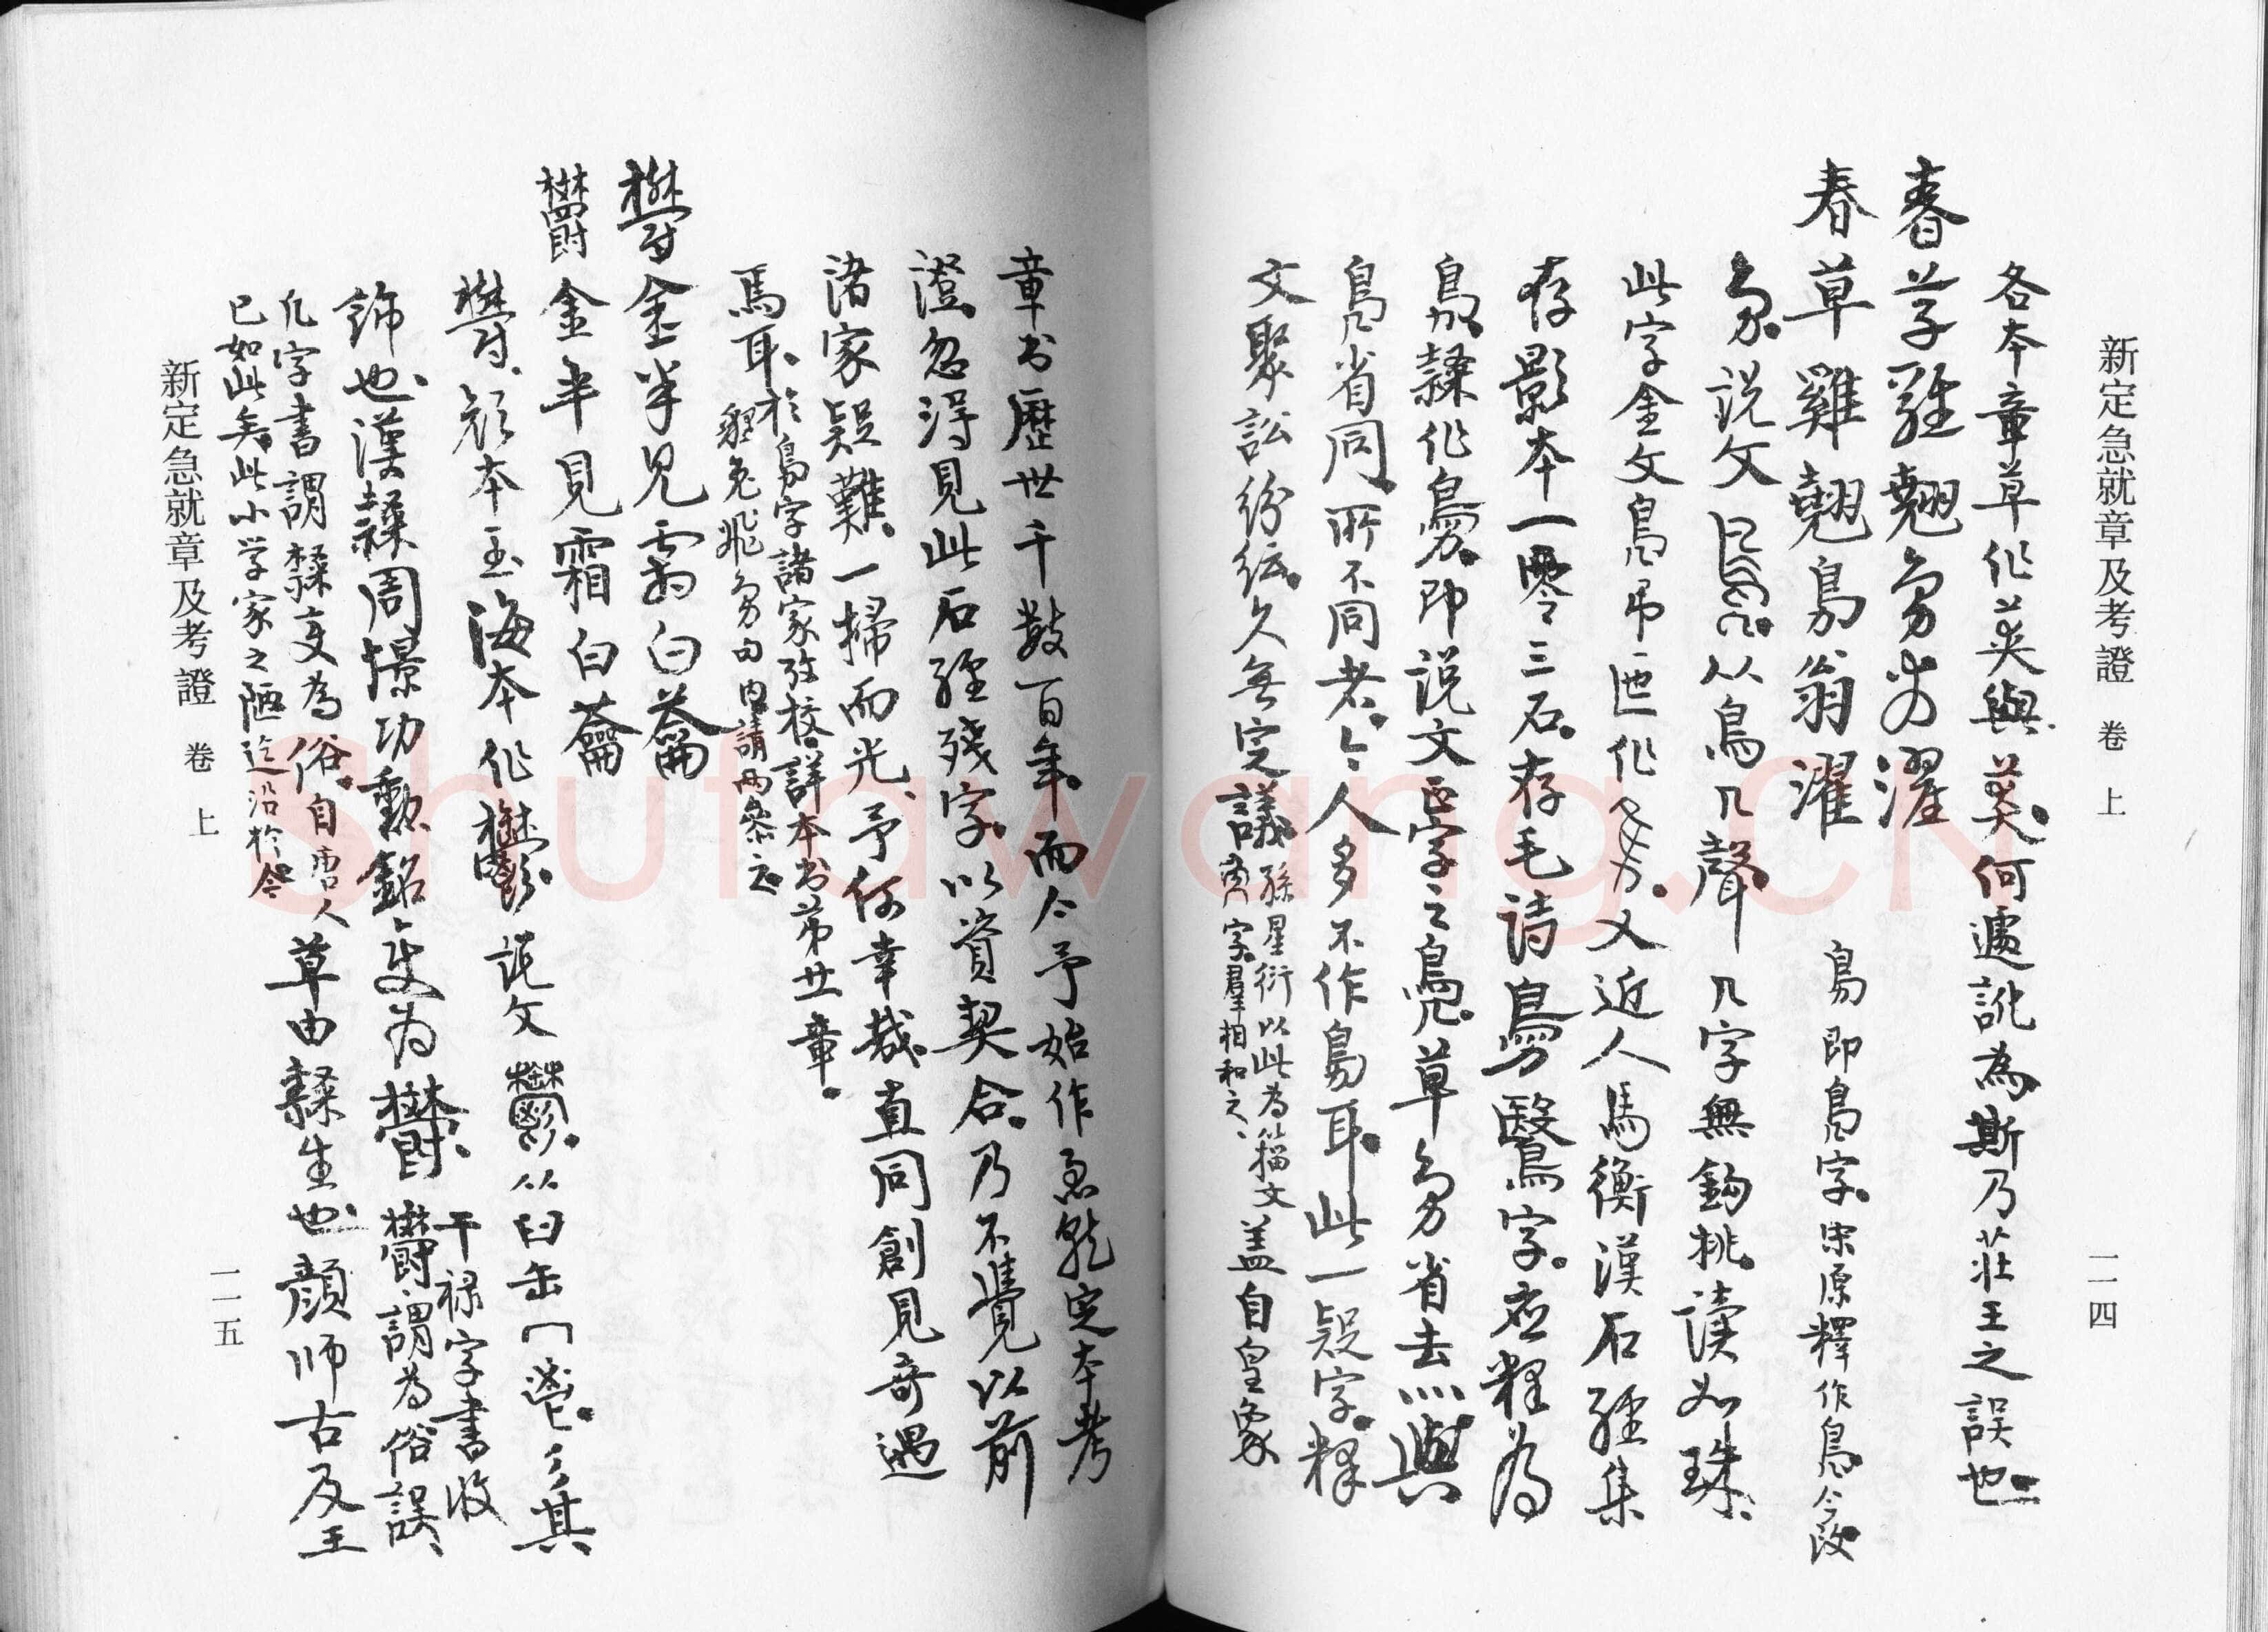 新定急就章及考證 卷上
一一四
各本章草作英與莫何遽訛為斯乃莊王之誤也
春草雞翹鳧翁濯
春草雞翹鳧翁濯 鳧即鳧字宋原釋作鳧今改
鳧說文从鳥几聲几字無鈎挑讀如珠
此字金文鳧弔匜作又近人馬衡漢石經集
存影本一零三石存毛詩鳧鷖字应釋為
鳧隸作鳧即說文正字之鳧草鳧省去灬與
鳧省同所不同者今人多不作鳧耳此一疑字釋
文聚訟紛紜久無定議孫星衍以此為籀文
字羣相和之
蓋自皇象
章书歷世千數百年而今予始作急就定本考
證忽得見此石經殘字以資契合乃不覺以前
诸家疑難一掃而光予何幸哉直同創見奇遇
馬耳於鳧字諸家攷校詳本书第廿章
貍兔飛鳧句内請两参之
鬱金半見霜白䕘
鬱金半見霜白䕘
鬱顏本玉海本作鬱說文鬱从臼缶冖鬯彡其
飾也漢隸周憬功勳銘变为欝干禄字書收
欝謂為俗誤
凡字書謂隸变為俗自唐人
已如此矣此小学家之陋迄沿於今
草由隸生也顔师古及王
新定急就章及考證 卷上
一一五
Shufawang.CN